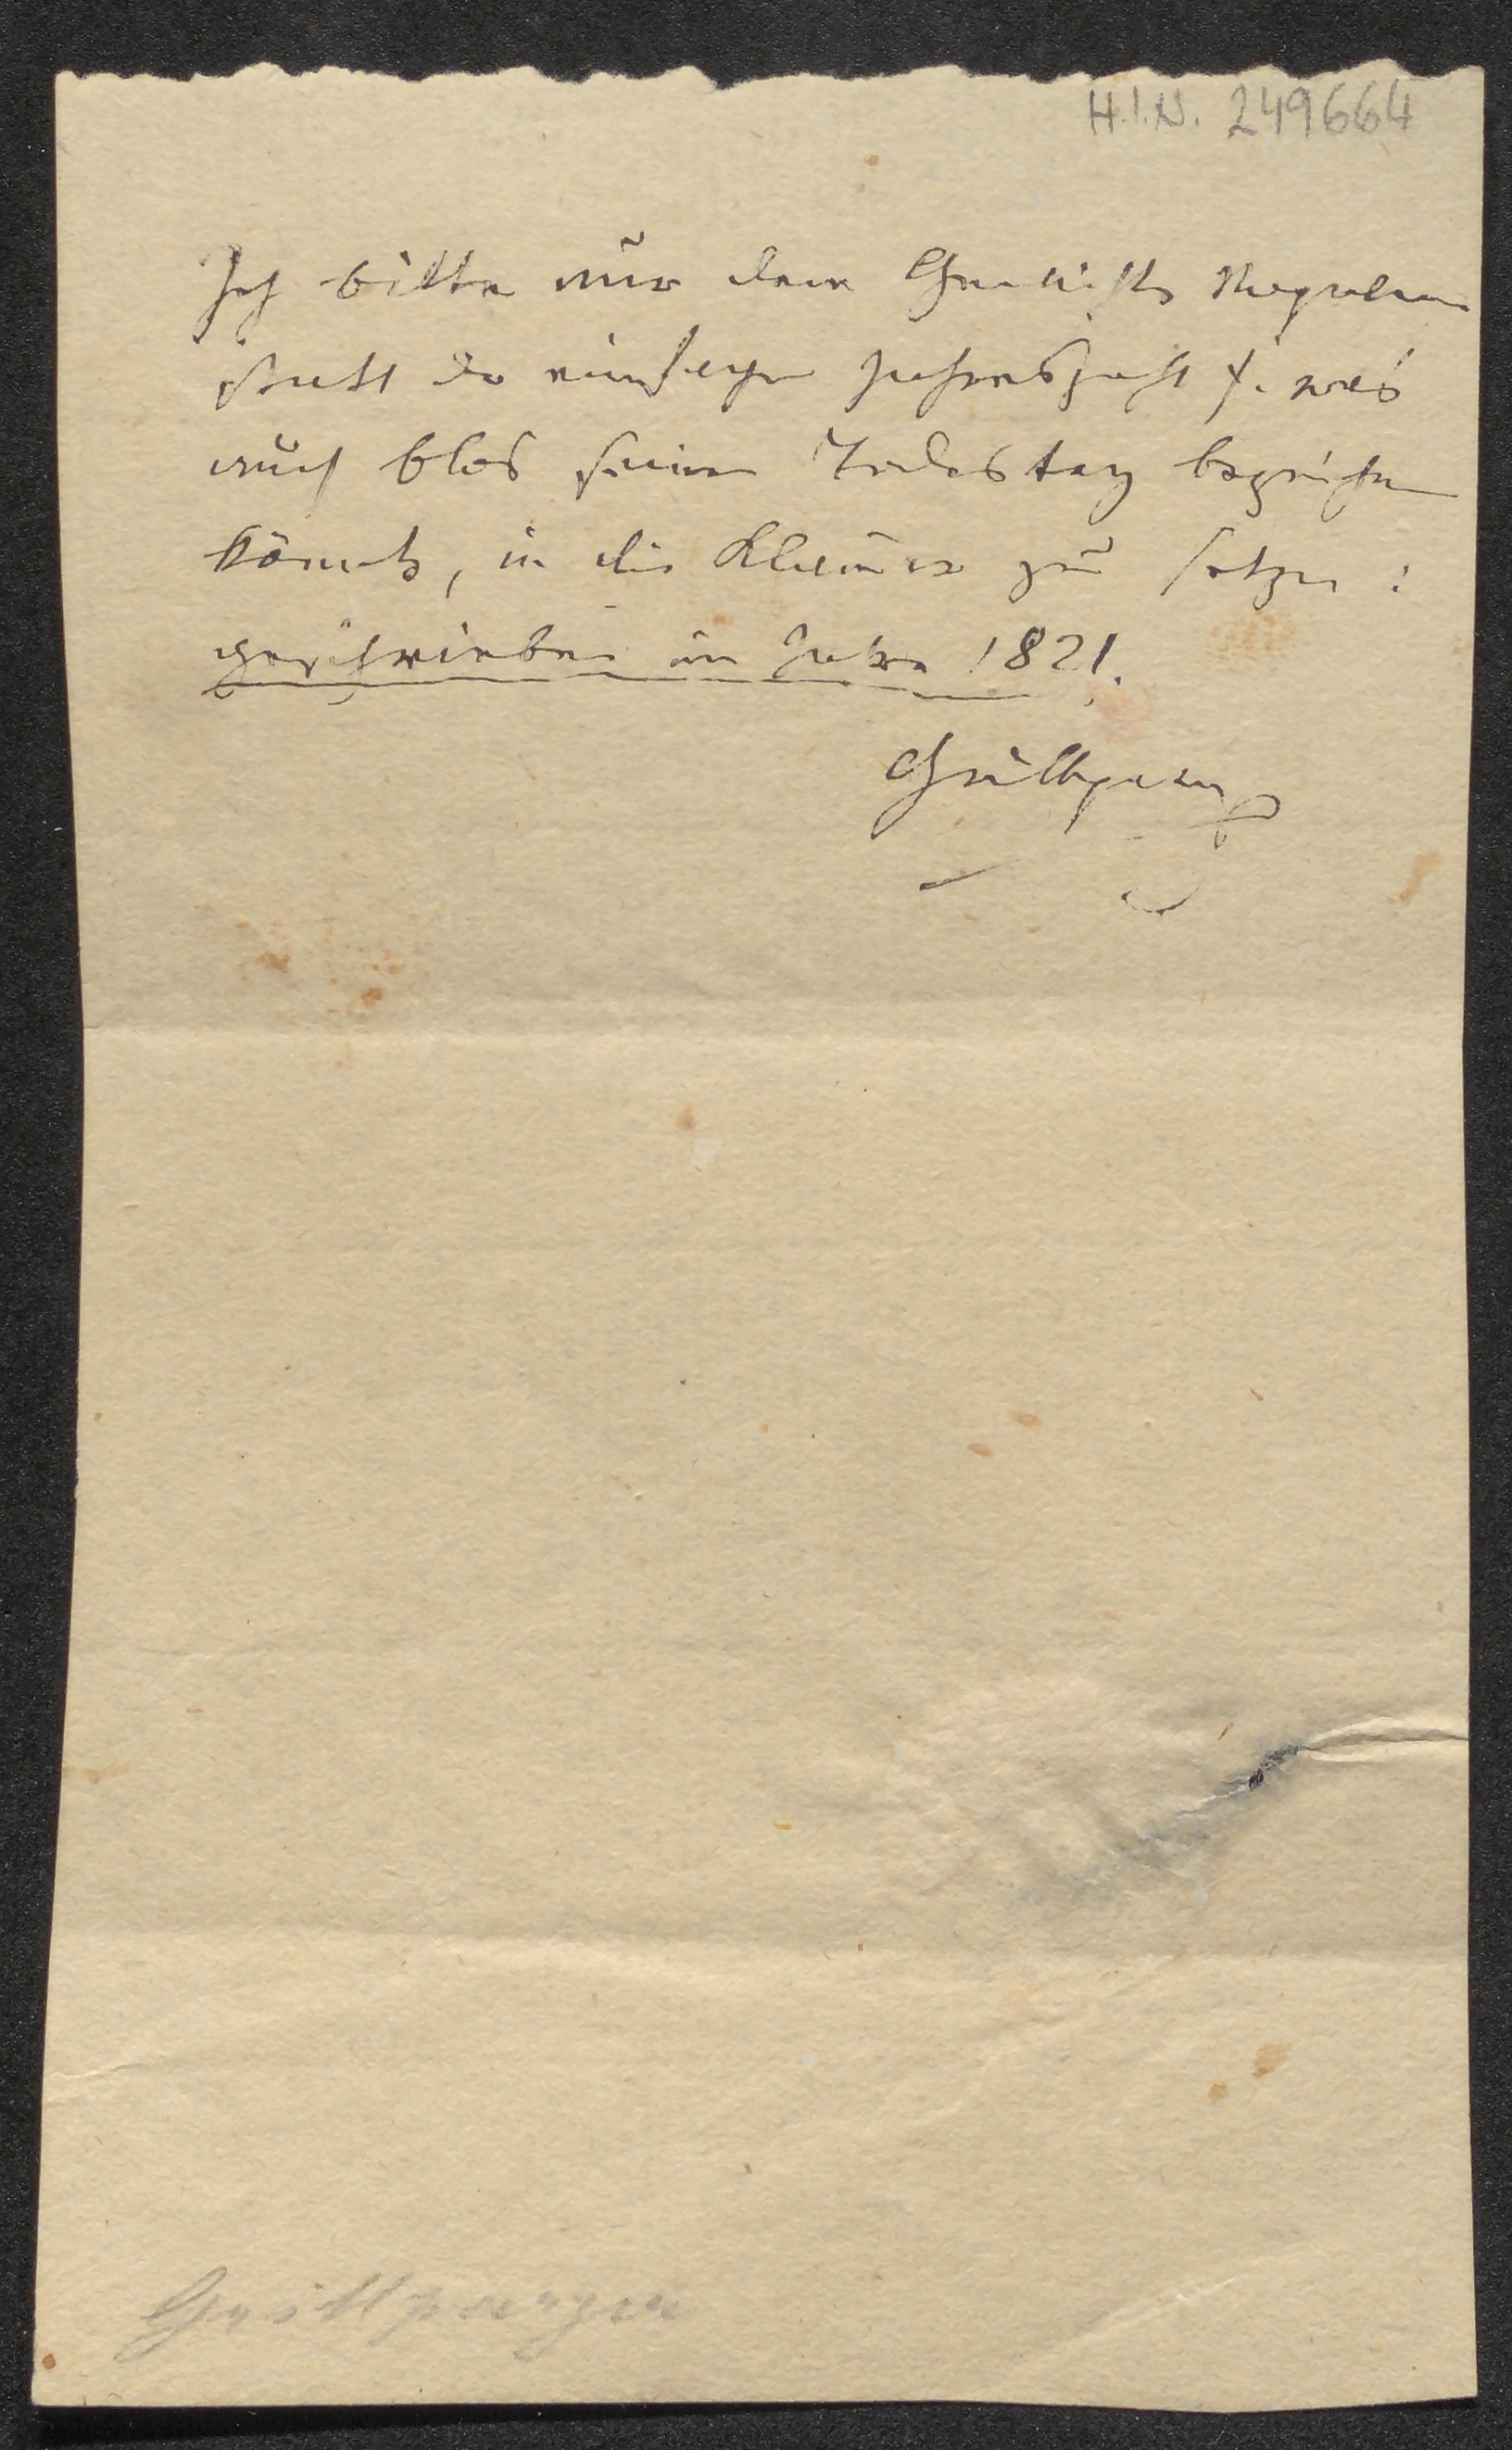 H.I.N. 249664
Ich bitte nur dem Gedichte Napoleon
statt der einfachen Jahreszahl p. was
auch blos seinen Todestag bezeichnen
könnte, in die Klamer zu setzen:
geschrieben im Jahre 1821.
Grillparzer
Grillparzer